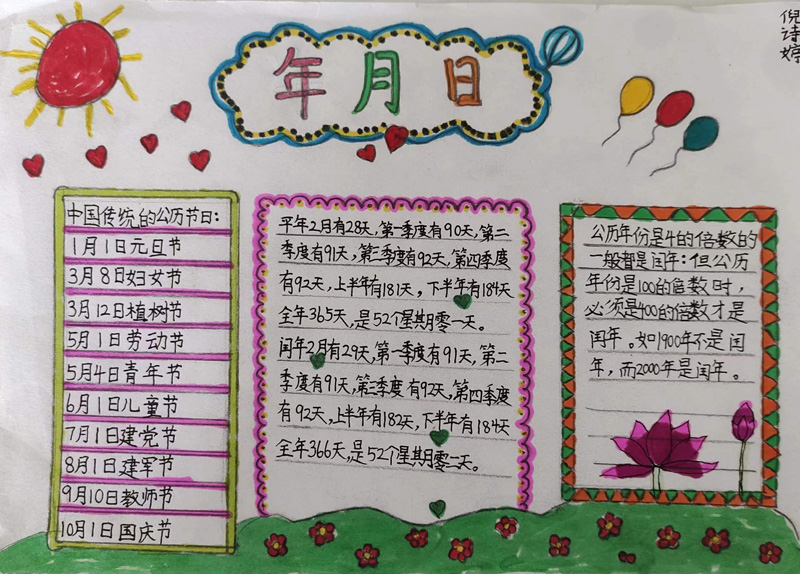 年月日
倪诗婷
中国传统的公历节日:
1月1日元旦节
3月8日妇女节
3月12日植树节
5月1日劳动节
5月4日青年节
6月1日儿童节
7月1日建党节
8月1日建军节
9月10日教师节
10月1日国庆节
平年2月有28天,第一季度有90天,第二
季度有91天,第三季度有92天,第四季度
有92天,上半年有181天,下半年有184天
全年365天,是52个星期零一天。
闰年2月有29天,第一季度有91天,第二
季度有91天,第三季度有92天,第四季度
有92天,上半年有182天,下半年有184天
全年366天,是52个星期零二天。
公历年份是4的倍数的
一般都是闰年:但公历
年份是100的倍数时,
必须是400的倍数才是
闰年。如1900年不是闰
年,而2000年是闰年。